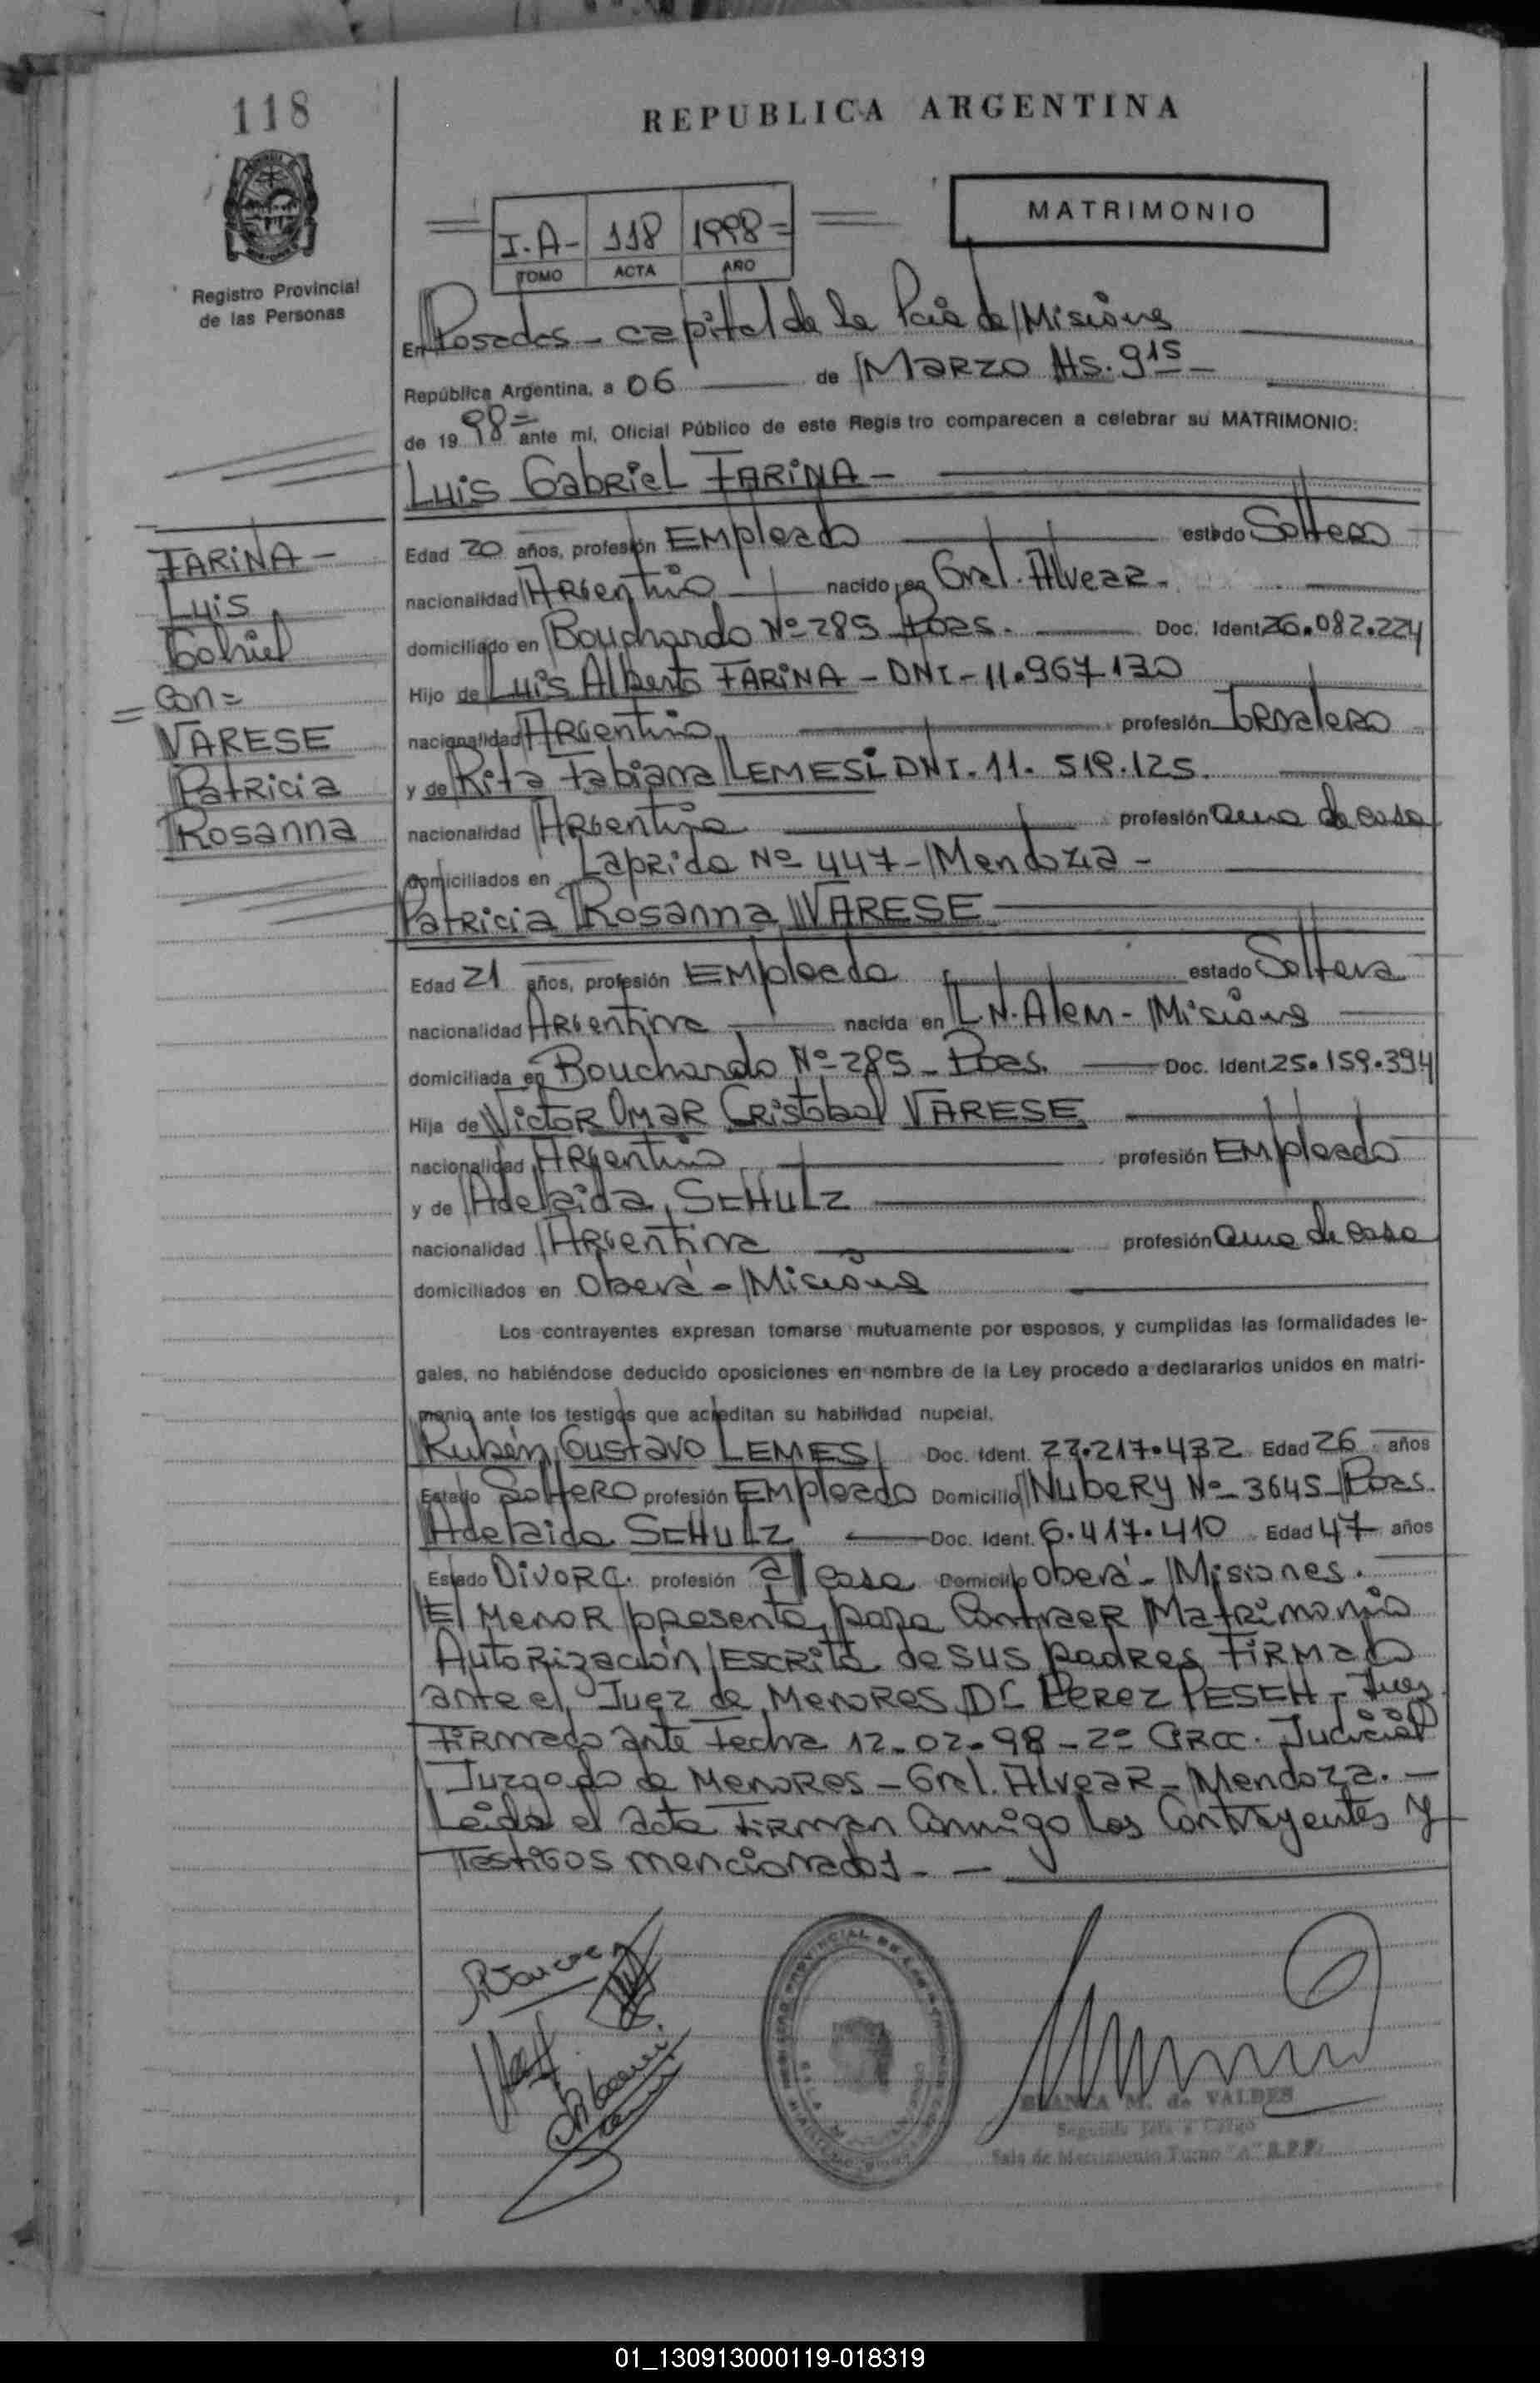 118
REPUBLICA ARGENTINA
MATRIMONIO
I.A- 118 1998=
TOMO ACTA AÑO
Registro Provincial
de las Personas
En Posadas - capital de la Pcia de Misiones
República Argentina, a 06 de Marzo Hs. 9 15 -
de 19 98= ante mi, Oficial Público de este Regis tro comparecen a celebrar su MATRIMONIO:
Luis Gabriel FARINA -
Edad 20 años, profesión Empleado estado Soltero
nacionalidad Argentino nacido en Gral. Alvear.
domiciliado en Bouchardo Nº 285 Pdas. Doc. Ident 26.082.224
Hijo de Luis Alberto FARINA - DNI - 11.967130
nacionalidad Argentino profesión Jornalero
y de Rita Fabiana LEMES DNI. 11. 519.125.
nacionalidad Argentina profesión ama de casa
domiciliados en Laprida Nº 447 - Mendoza -
Patricia Rosanna VARESE
Edad 21 años, profesión Empleada estado Soltera
nacionalidad Argentina nacida en L.N. Alem - Misiones
domiciliada en Bouchardo Nº 285 - Pdas. Doc. Ident 25.159.394
Hija de Victor Omar Cristobal VARESE
nacionalidad Argentino profesión Empleado
y de Adelaida SCHULZ
nacionalidad Argentina profesión ama de casa
domiciliados en Oberá - Misiones
Los contrayentes expresan tomarse mutuamente por esposos, y cumplidas las formalidades le-
gales, no habiéndose deducido oposiciones en nombre de la Ley procedo a declararlos unidos en matri-
monio ante los testigos que acreditan su habilidad nupcial.
Rubén Gustavo LEMES Doc. Ident. 22.217.432 Edad 26 años
Estado Soltero profesión Empleado Domicilio Nubery Nº 3645 - Pdas.
Adelaida SCHULZ Doc. Ident. 6.417.410 Edad 47 años
Estado Divorc. profesión a/ casa Domicilio Oberá - Misiones.
El Menor presenta para Contraer Matrimonio
Autorización Escrita de sus padres Firmado
ante el Juez de Menores Dr Perez PESCH -
Firmado ante Fecha 12-02-98 - 2º Circ. Judicial
Juzgado de Menores - Gral. Alvear - Mendoza. -
Leida el acta Firman Conmigo los Contrayentes y
Testigos mencionados. -
FARINA -
Luis
Gabriel
con =
VARESE
Patricia
Rosanna
BLANCA M. de VALDES
Segunda Jefa a Cargo
Sala de Matrimonio Turno "A" R.P.P.
01_130913000119-018319